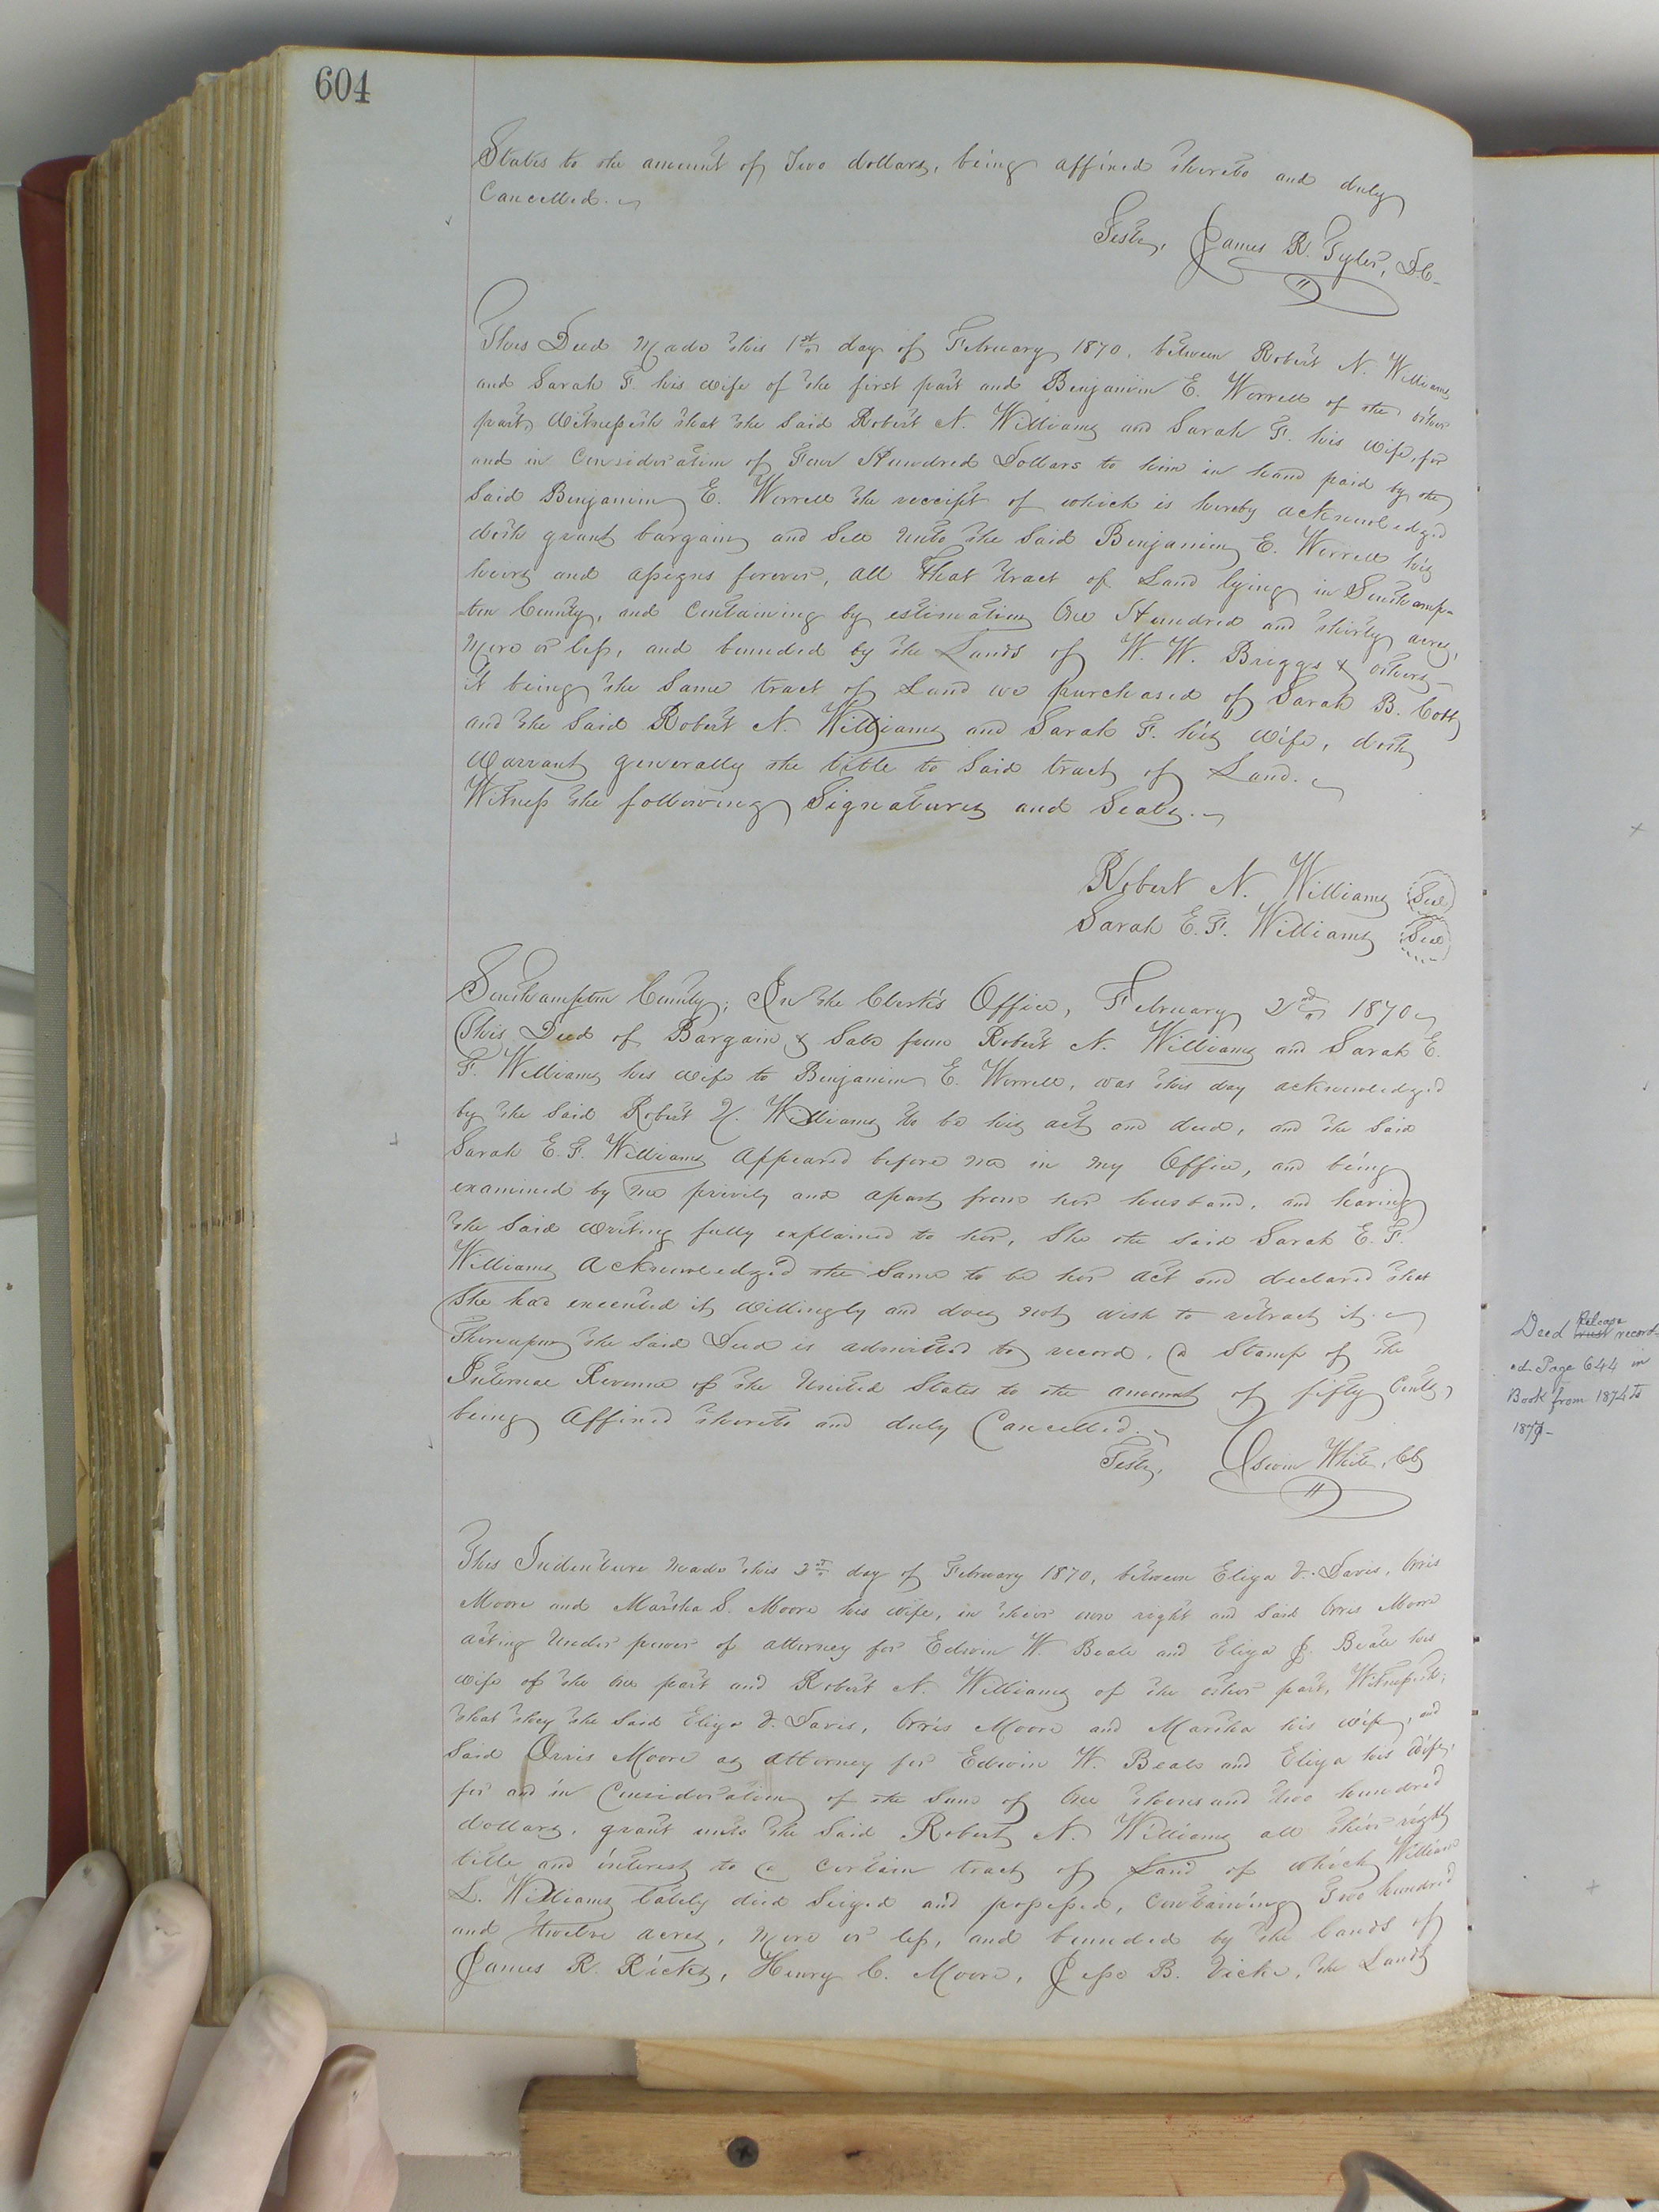 604
States to the amount of Two dollars, being affixed thereto and duly
Cancelled.
Teste, James R. Tyler, D.C.
This Deed Made this 1st day of February 1870, between Robert N. Williams
and Sarah F. his wife of the first part and Benjamin E. Worrell of the other
part, Witnesseth that the said Robert N. Williams and Sarah F. his wife, for
and in Consideration of Four Hundred Dollars to him in hand paid by the
Said Benjamin E. Worrell the receipt of which is hereby acknowledged
doth grant bargain and Sell unto the Said Benjamin E. Worrell his
heirs and assigns forever, all that tract of Land lying in Southamp-
-ton County, and Containing by estimation One Hundred and thirty acres,
More or less, and bounded by the Lands of W. W. Briggs & others,
it being the Same tract of Land we purchased of Sarah B. Cobb
and the Said Robert N. Williams and Sarah F. his wife, doth
Warrant generally the title to Said tract of Land.
Witness the following Signatures and Seals.
Robert N. Williams Seal
Sarah E. F. Williams Seal
Southampton County; In the Clerk's Office, February 2nd 1870
This Deed of Bargain & Sale from Robert N. Williams and Sarah E.
F. Williams his wife to Benjamin E. Worrell, was this day acknowledged
by the Said Robert N. Williams to be his act and deed, and the Said
Sarah E. F. Williams appeared before me in my Office, and being
examined by me privily and apart from her husband, and having
the Said writing fully explained to her, She the said Sarah E. F.
Williams acknowledged the Same to be her act and declared that
She had executed it willingly and does not wish to retract it.
Thereupon the Said Deed is admitted to record, a Stamp of the
Internal Revenue of the United States to the amount of fifty Cents,
being affixed thereto and duly Cancelled.
Teste, Edwin White, Clk
This Indenture made this 2nd day of February 1870, between Eliza V. Davis, Orris
Moore and Martha S. Moore his wife, in their own right and Said Orris Moore
acting Under power of attorney for Edwin W. Beale and Eliza J. Beale his
wife of the One part and Robert N. Williams of the other part, Witnesseth;
that they the Said Eliza V. Davis, Orris Moore and Martha his wife, and
Said Orris Moore as attorney for Edwin W. Beale and Eliza his wife,
for and in Consideration of the Sum of One thousand two hundred
dollars, grant unto the Said Robert N. Williams all their right
title and interest to a certain tract of Land of which William
L. Williams lately died Seized and possessed, Containing Two hundred
and twelve acres, More or less, and bounded by the lands of
James R. Ricks, Henry C. Moore, Jesse B. Vick, the Lands
Release
Deed trust record-
ed Page 644 in
Book from 1874 to
187